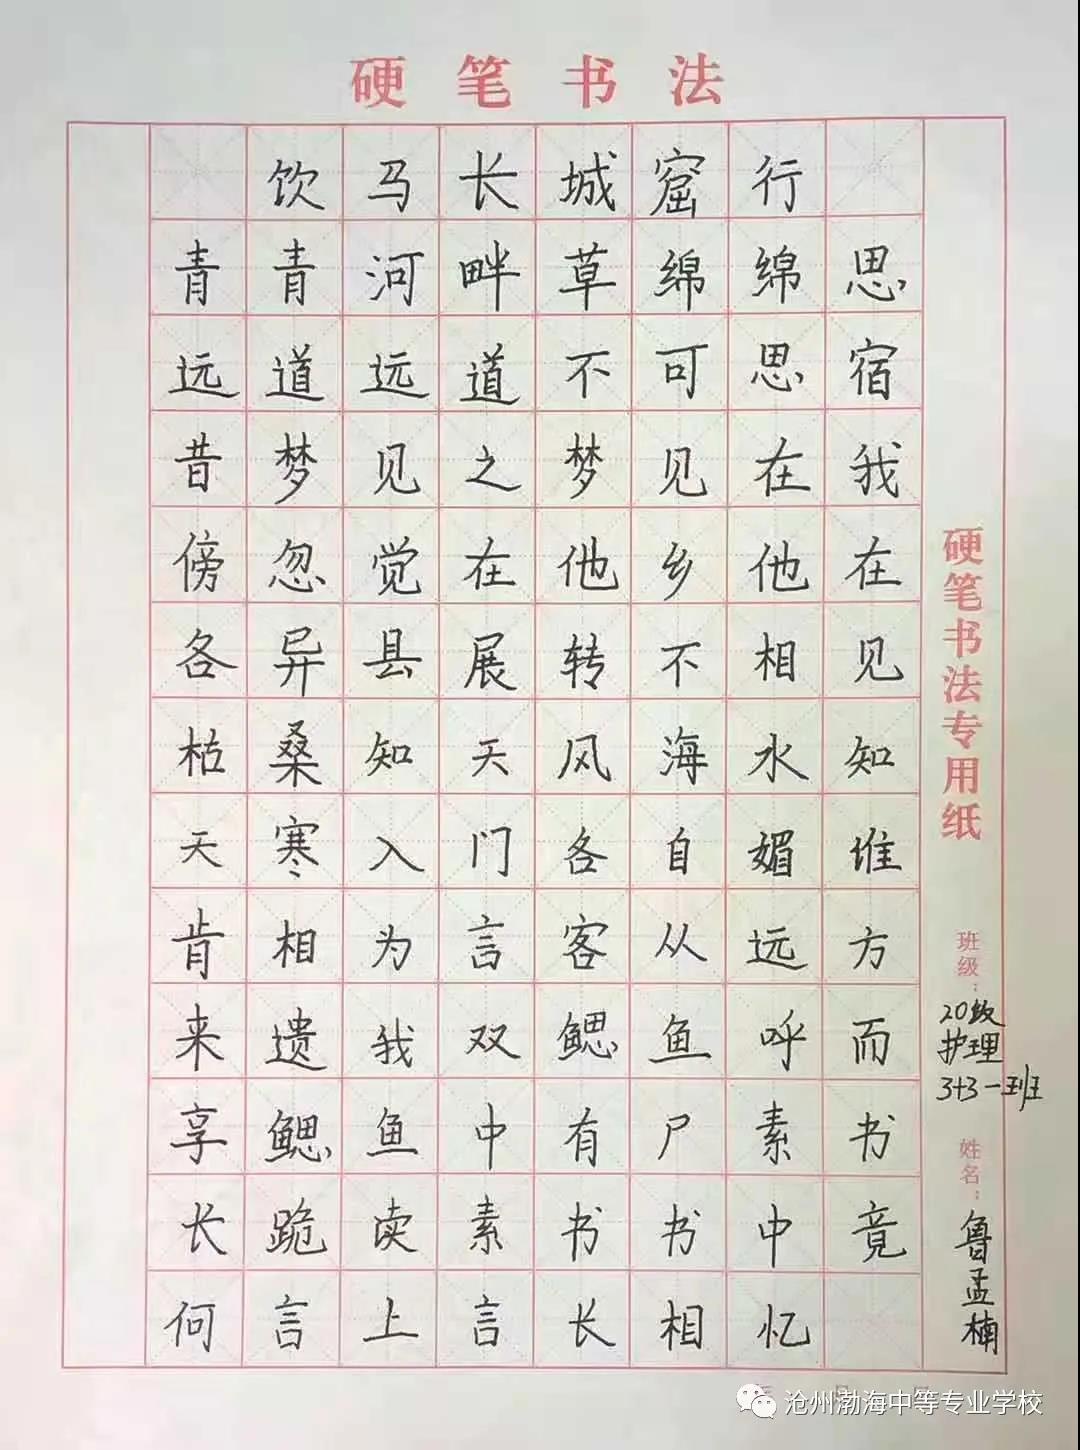 硬笔书法
饮马长城窟行
青青河畔草绵绵思
远道远道不可思宿
昔梦见之梦见在我
傍忽觉在他乡他在
各异县展转不相见
枯桑知天风海水知
天寒入门各自媚谁
肯相为言客从远方
来遗我双鳃鱼呼而
享鳃鱼中有尸素书
长跪读素书书中竟
何言上言长相忆
硬笔书法专用纸
班级：
20级
护理
3+3一班
姓名：
鲁孟楠
沧州渤海中等专业学校